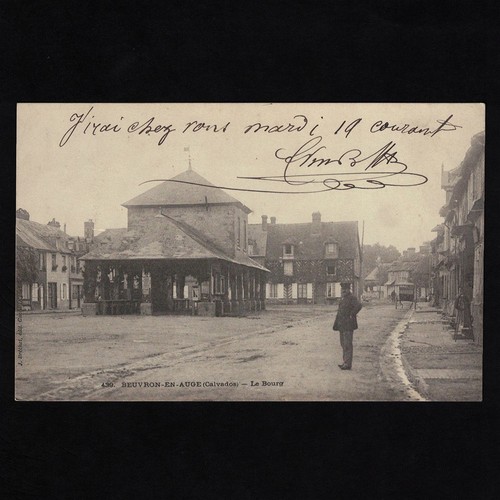 J'irai chez vous mardi 19 courant
430. BEUVRON-EN-AUGE (Calvados) — Le Bourg